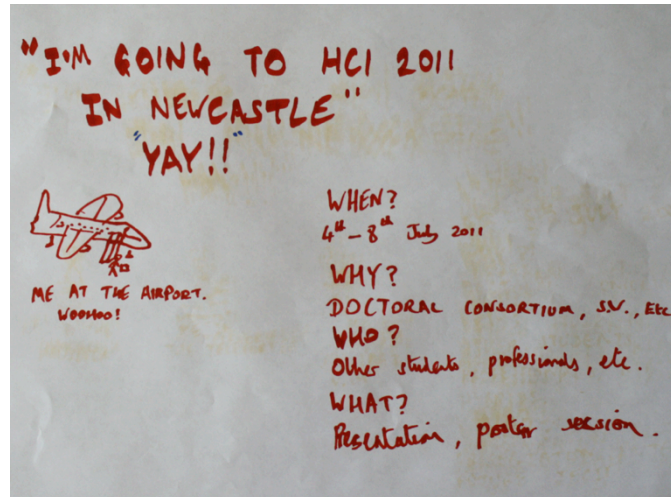 "I'M GOING TO HCI 2011
IN NEWCASTLE"
"YAY!!"
ME AT THE AIRPORT.
WOOHOO!
WHEN?
4th - 8th July 2011
WHY?
DOCTORAL CONSORTIUM, S.V., Etc
WHO?
Other students, professionals, etc.
WHAT?
Presentation, poster session.